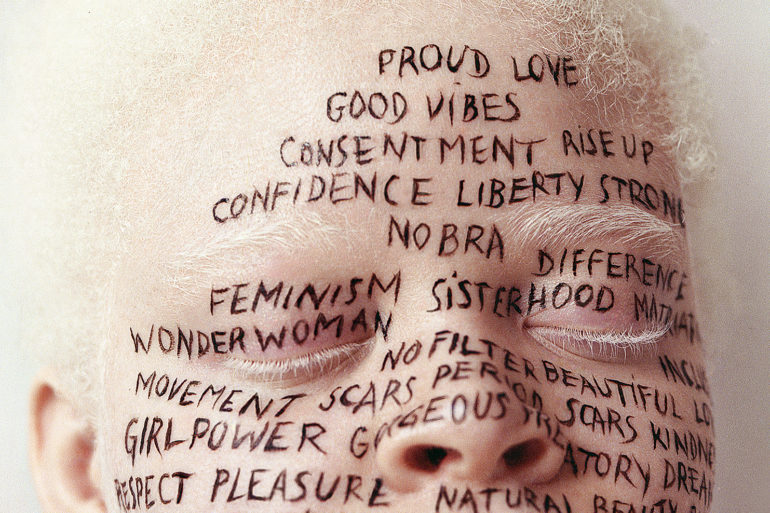 PROUD LOVE
GOOD VIBES
CONSENTMENT RISE UP
CONFIDENCE LIBERTY STRONG
NO BRA
DIFFERENCE
FEMINISM SISTERHOOD
WONDER WOMAN
NO FILTER BEAUTIFUL
MOVEMENT SCARS PERIOD SCARS KINDNE
GIRLPOWER GORGEOUS
RESPECT PLEASURE
NATURAL BEAUTY